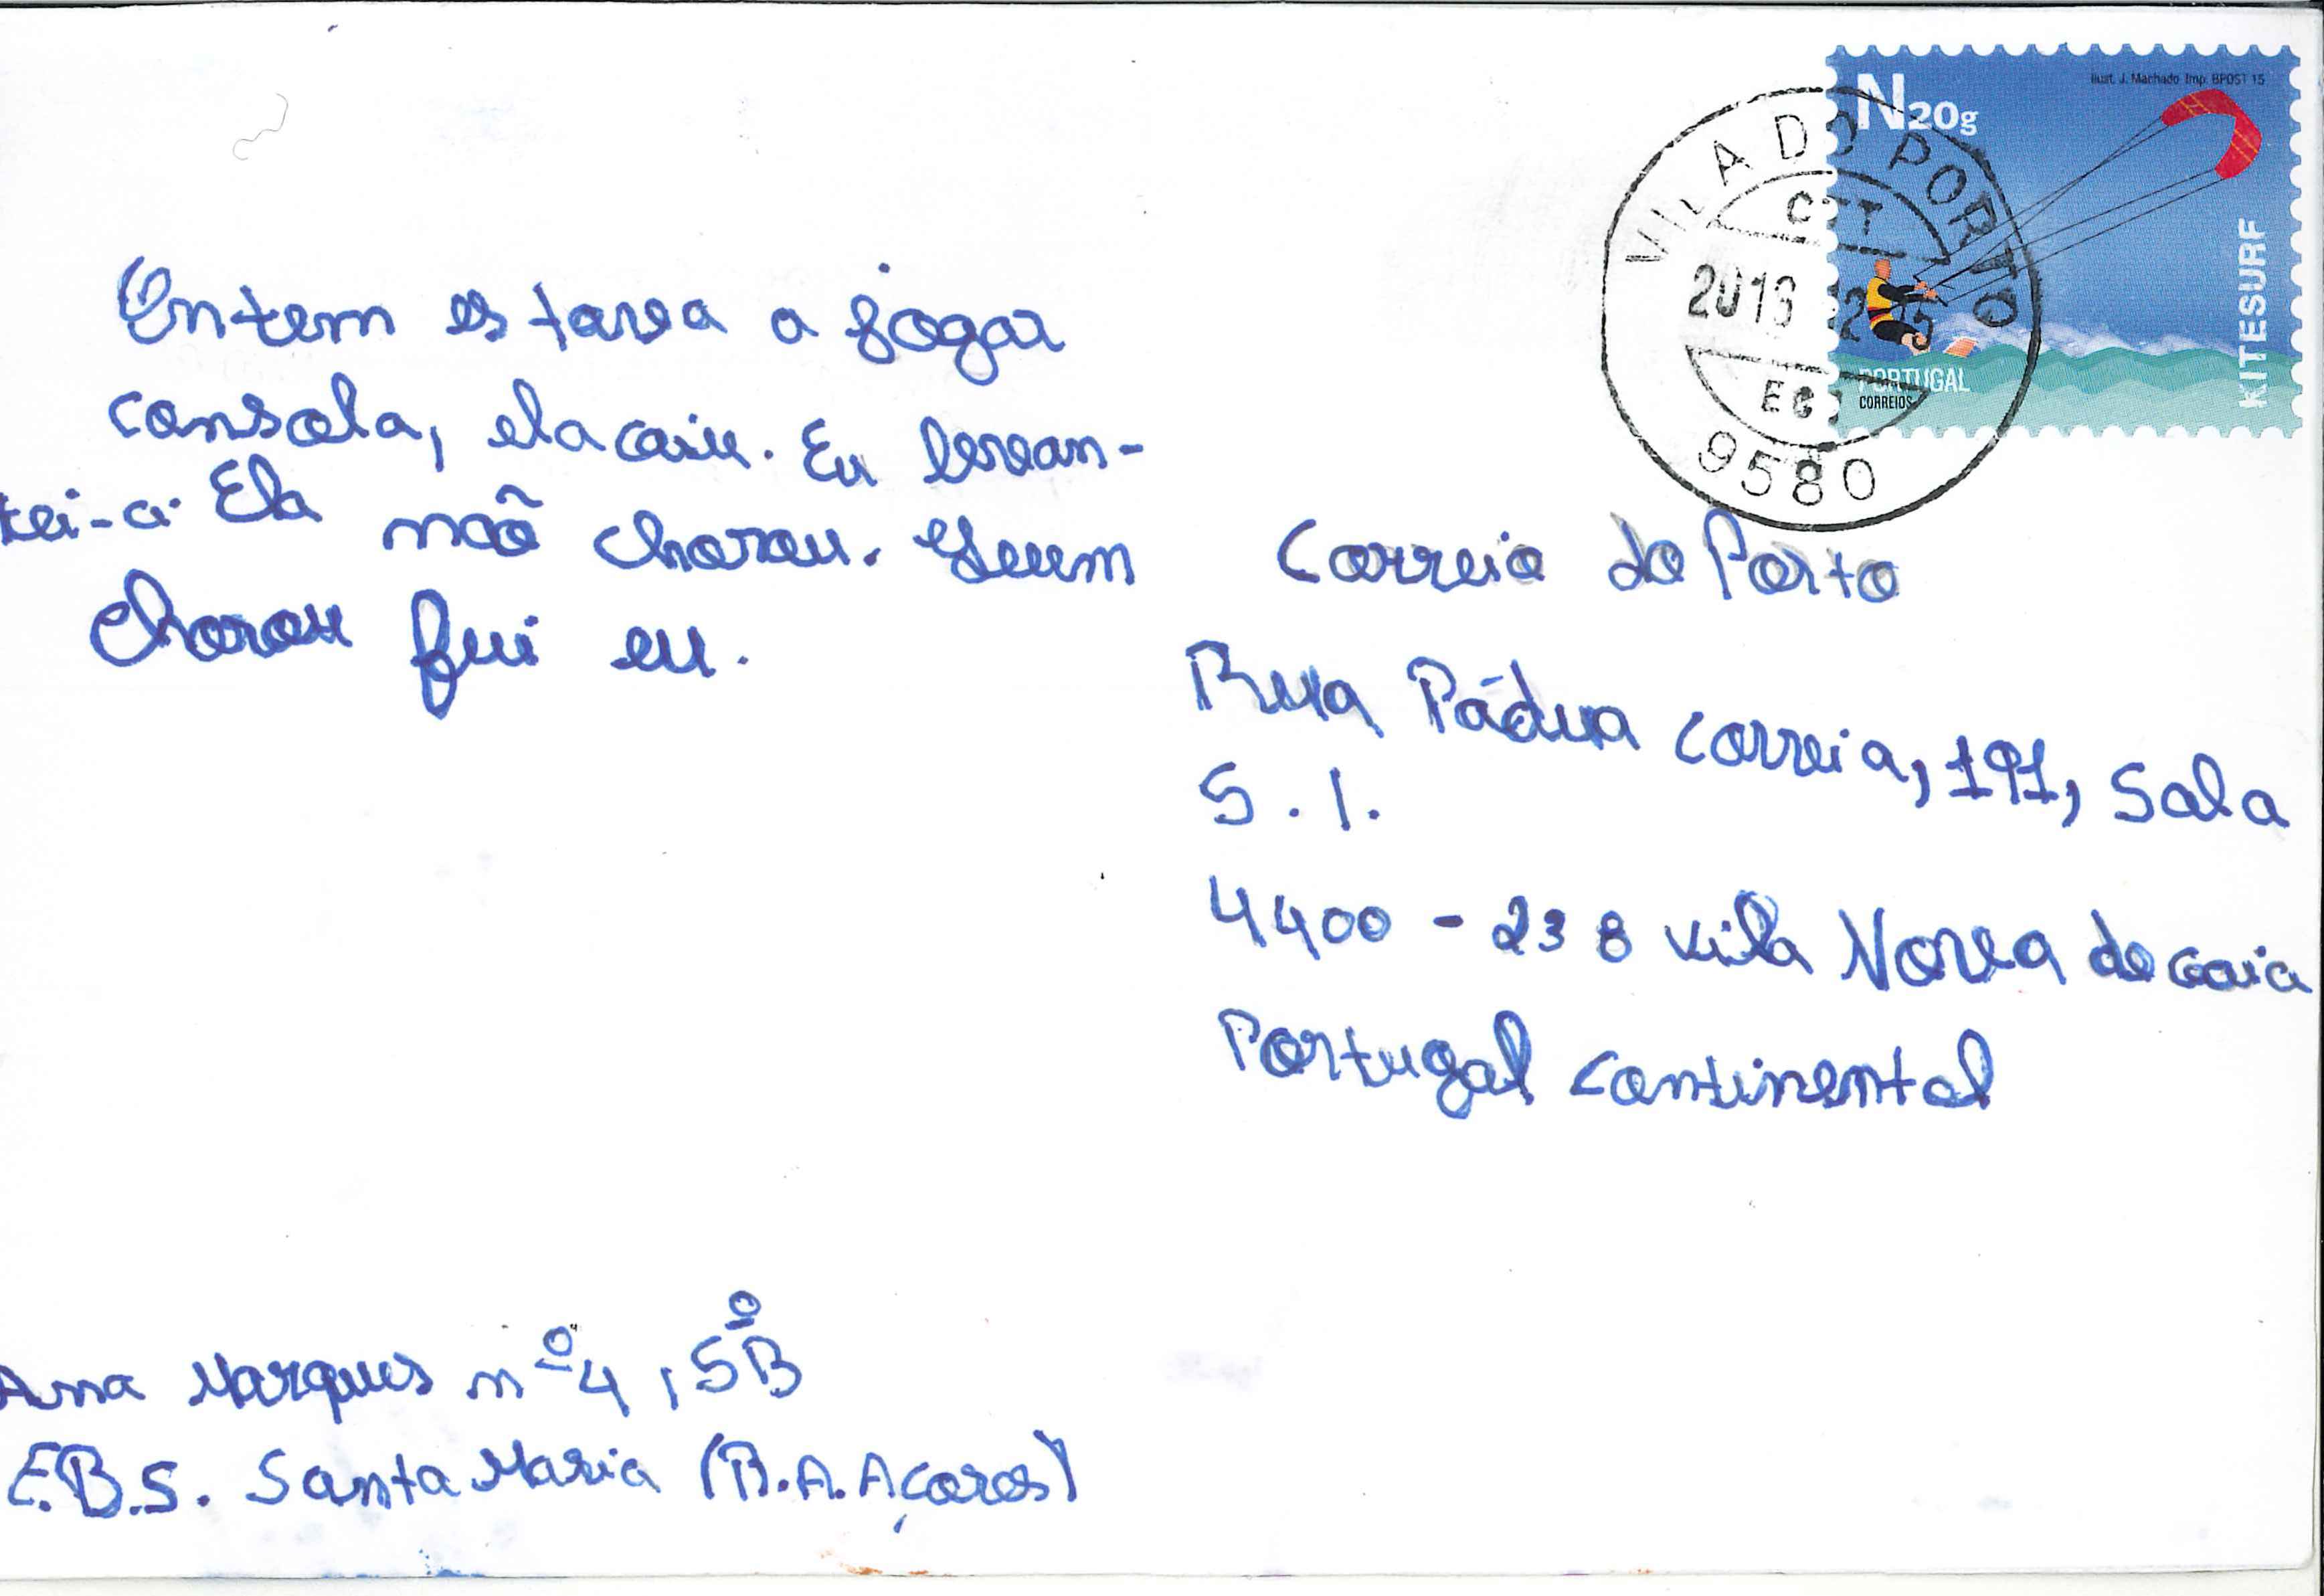 Ontem estava a jogar
consola, ela caiu. Eu levan-
tei-a. Ela não chorou. Quem
chorou fui eu.
Ana Marques nº4, 5ºB
E.B.S. Santa Maria (R.A.Açores)
N20g
Ilust. J. Machado Imp. BPOST 15
KITESURF
PORTUGAL
CORREIOS
VILA DO PORTO
CTT
2016
9580
Correio do Porto
Rua Pádua Correia, 191, Sala
5.1.
4400-238 Vila Nova de Gaia
Portugal Continental